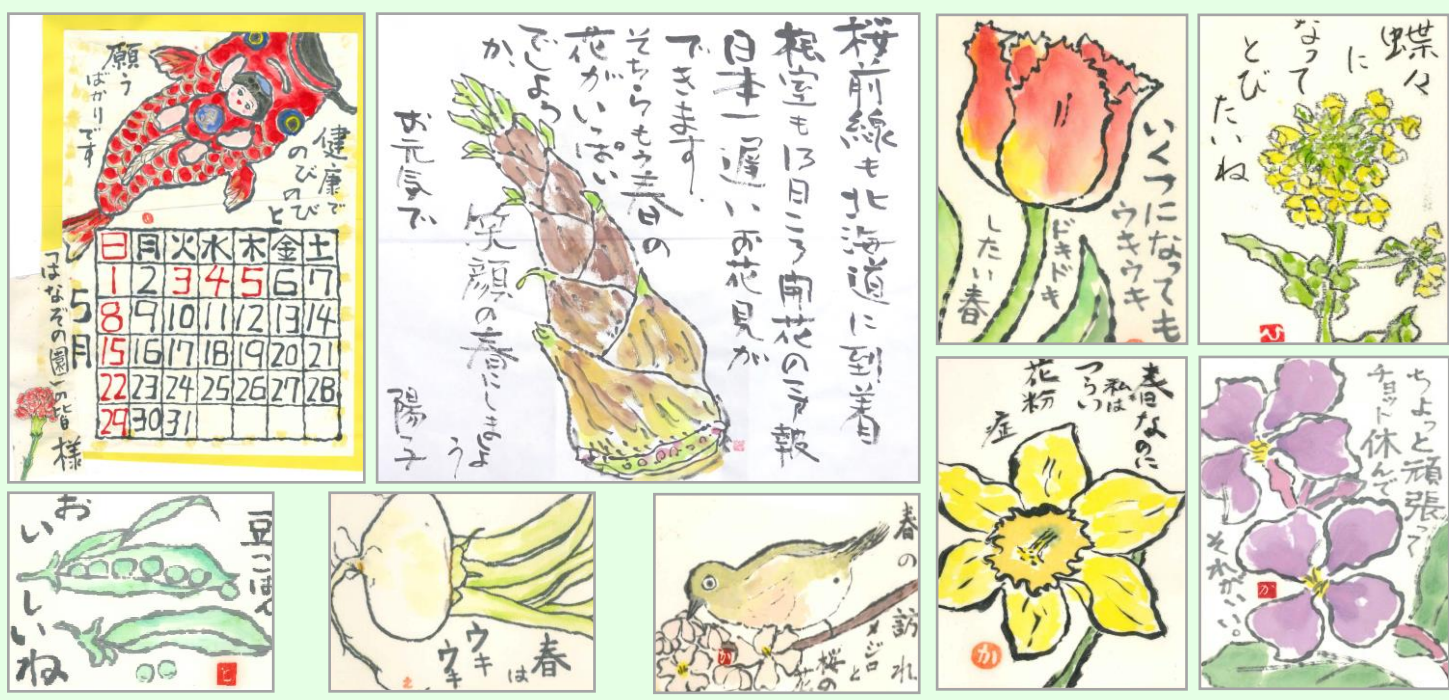 願う
ばかりです
健康で
のびのび
と
5月
日月火水木金土
1 2 3 4 5 6 7
8 9 10 11 12 13 14
15 16 17 18 19 20 21
22 23 24 25 26 27 28
29 30 31
「はなぞの園」の皆様
桜前線も北海道に到着
根室も13日ころ開花の予報
日本一遅いお花見が
できます。
そちらもう春の
花がいっぱい
でしょう
か。
お元気で
笑顔の春にしましょう
陽子
いくつになっても
ウキウキ
ドキドキ
したい春
蝶々
に
なって
とび
たいね
春なのに
私は
つらい
花粉
症
か
ちょっと頑張って
チョット休んで
それがいい。
か
豆ごはん
おいしいね
と
春
は
ウキ
ウキ
春の訪れ
メジロと
桜の花
か